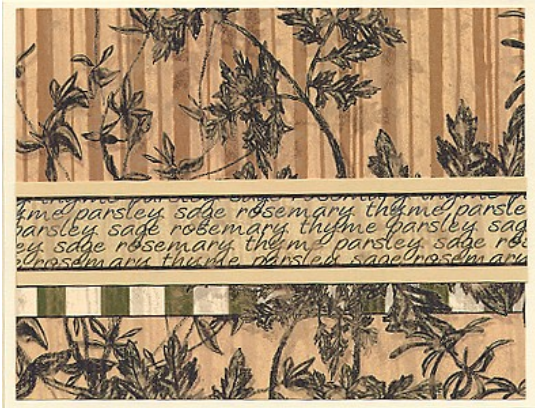 thyme parsley sage rosemary
yme parsley sage rosemary thyme parsle
parsley sage rosemary thyme parsley sag
ey sage rosemary thyme parsley sage ro
rosemary thyme parsley sage rosemary